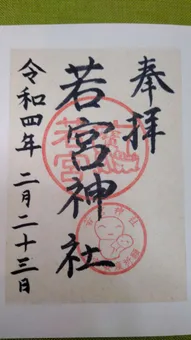 奉拝
若宮神社
令和四年 二月二十三日